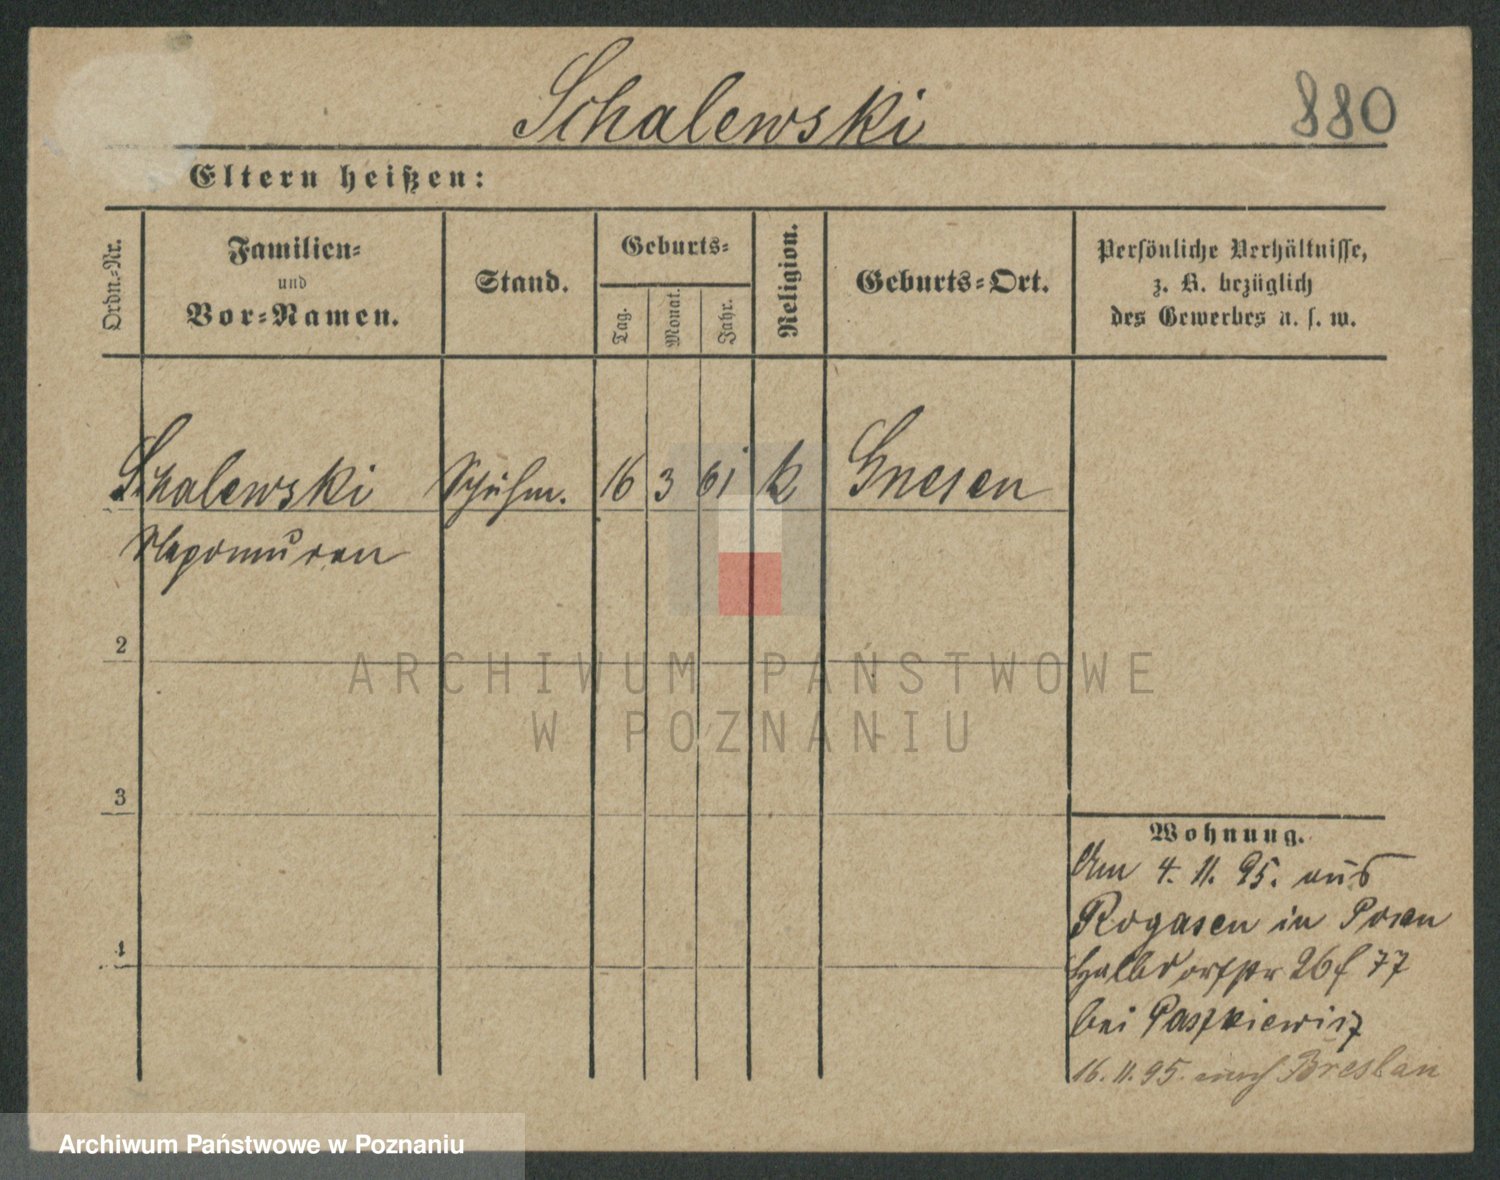 Schalewski
880
Eltern heißen:
Ordn.-Nr.
Familien-
und
Vor-Namen.
Stand.
Geburts-
Tag.
Monat.
Jahr.
Religion.
Geburts-Ort.
Persönliche Verhältnisse,
z. B. bezüglich
des Gewerbes u. s. w.
Schalewski
Schuhm.
16
3
61
k
Gnesen
2
3
4
Wohnung.
Am 4. 11. 95. aus
Rogasen in Posen
Halbdorfstr 26 f 77
bei Paszkiewicz
16. 11. 95. nach Breslau
ARCHIWUM PAŃSTWOWE
W POZNANIU
Archiwum Państwowe w Poznaniu